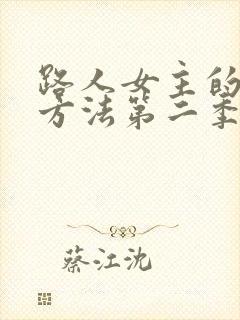 路人女主的
方法第二季
蔡江沈